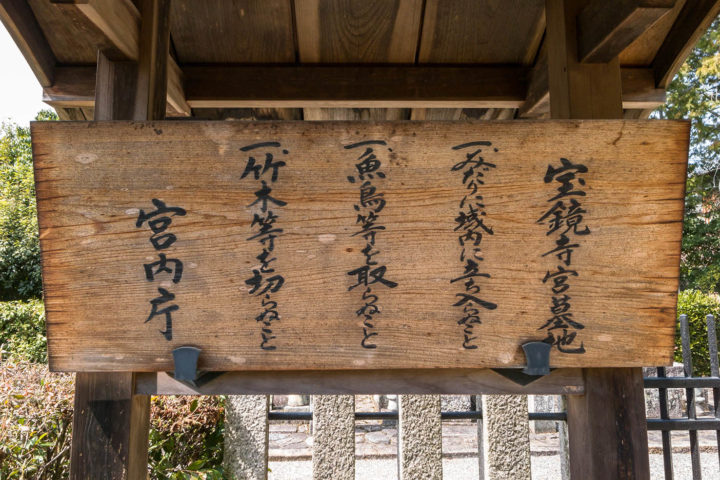 宝鏡寺宮墓地
一、みだりに域内に立ち入らぬこと
一、魚鳥等を取らぬこと
一、竹木等を切らぬこと
宮内庁